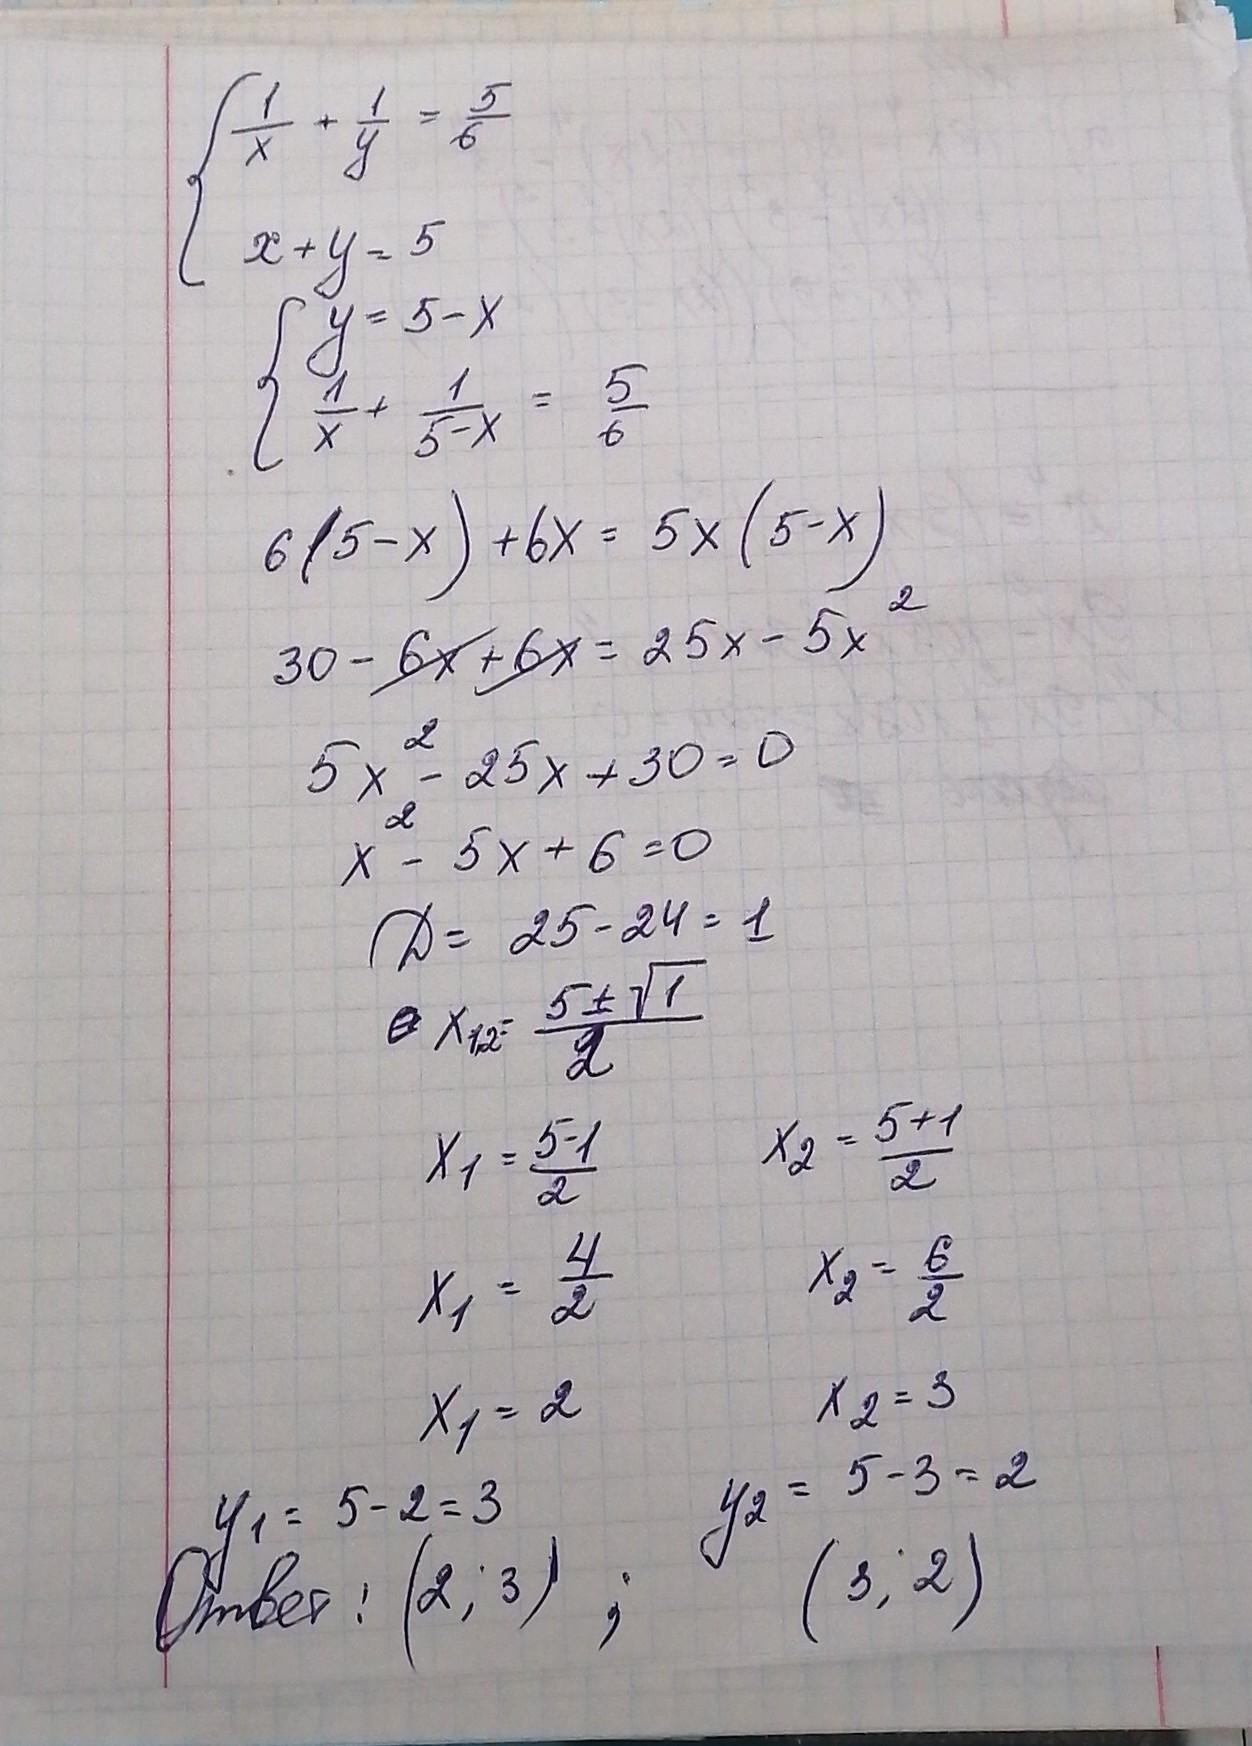 1/x + 1/y = 5/6
x + y = 5
y = 5 - x
1/x + 1/(5-x) = 5/6
6(5-x) + 6x = 5x(5-x)
30 - 6x + 6x = 25x - 5x²
5x² - 25x + 30 = 0
x² - 5x + 6 = 0
D = 25 - 24 = 1
x1,2 = (5 ± √1)/2
x1 = (5-1)/2 x2 = (5+1)/2
x1 = 4/2 x2 = 6/2
x1 = 2 x2 = 3
y1 = 5 - 2 = 3 y2 = 5 - 3 = 2
Ответ: (2; 3) ; (3; 2)